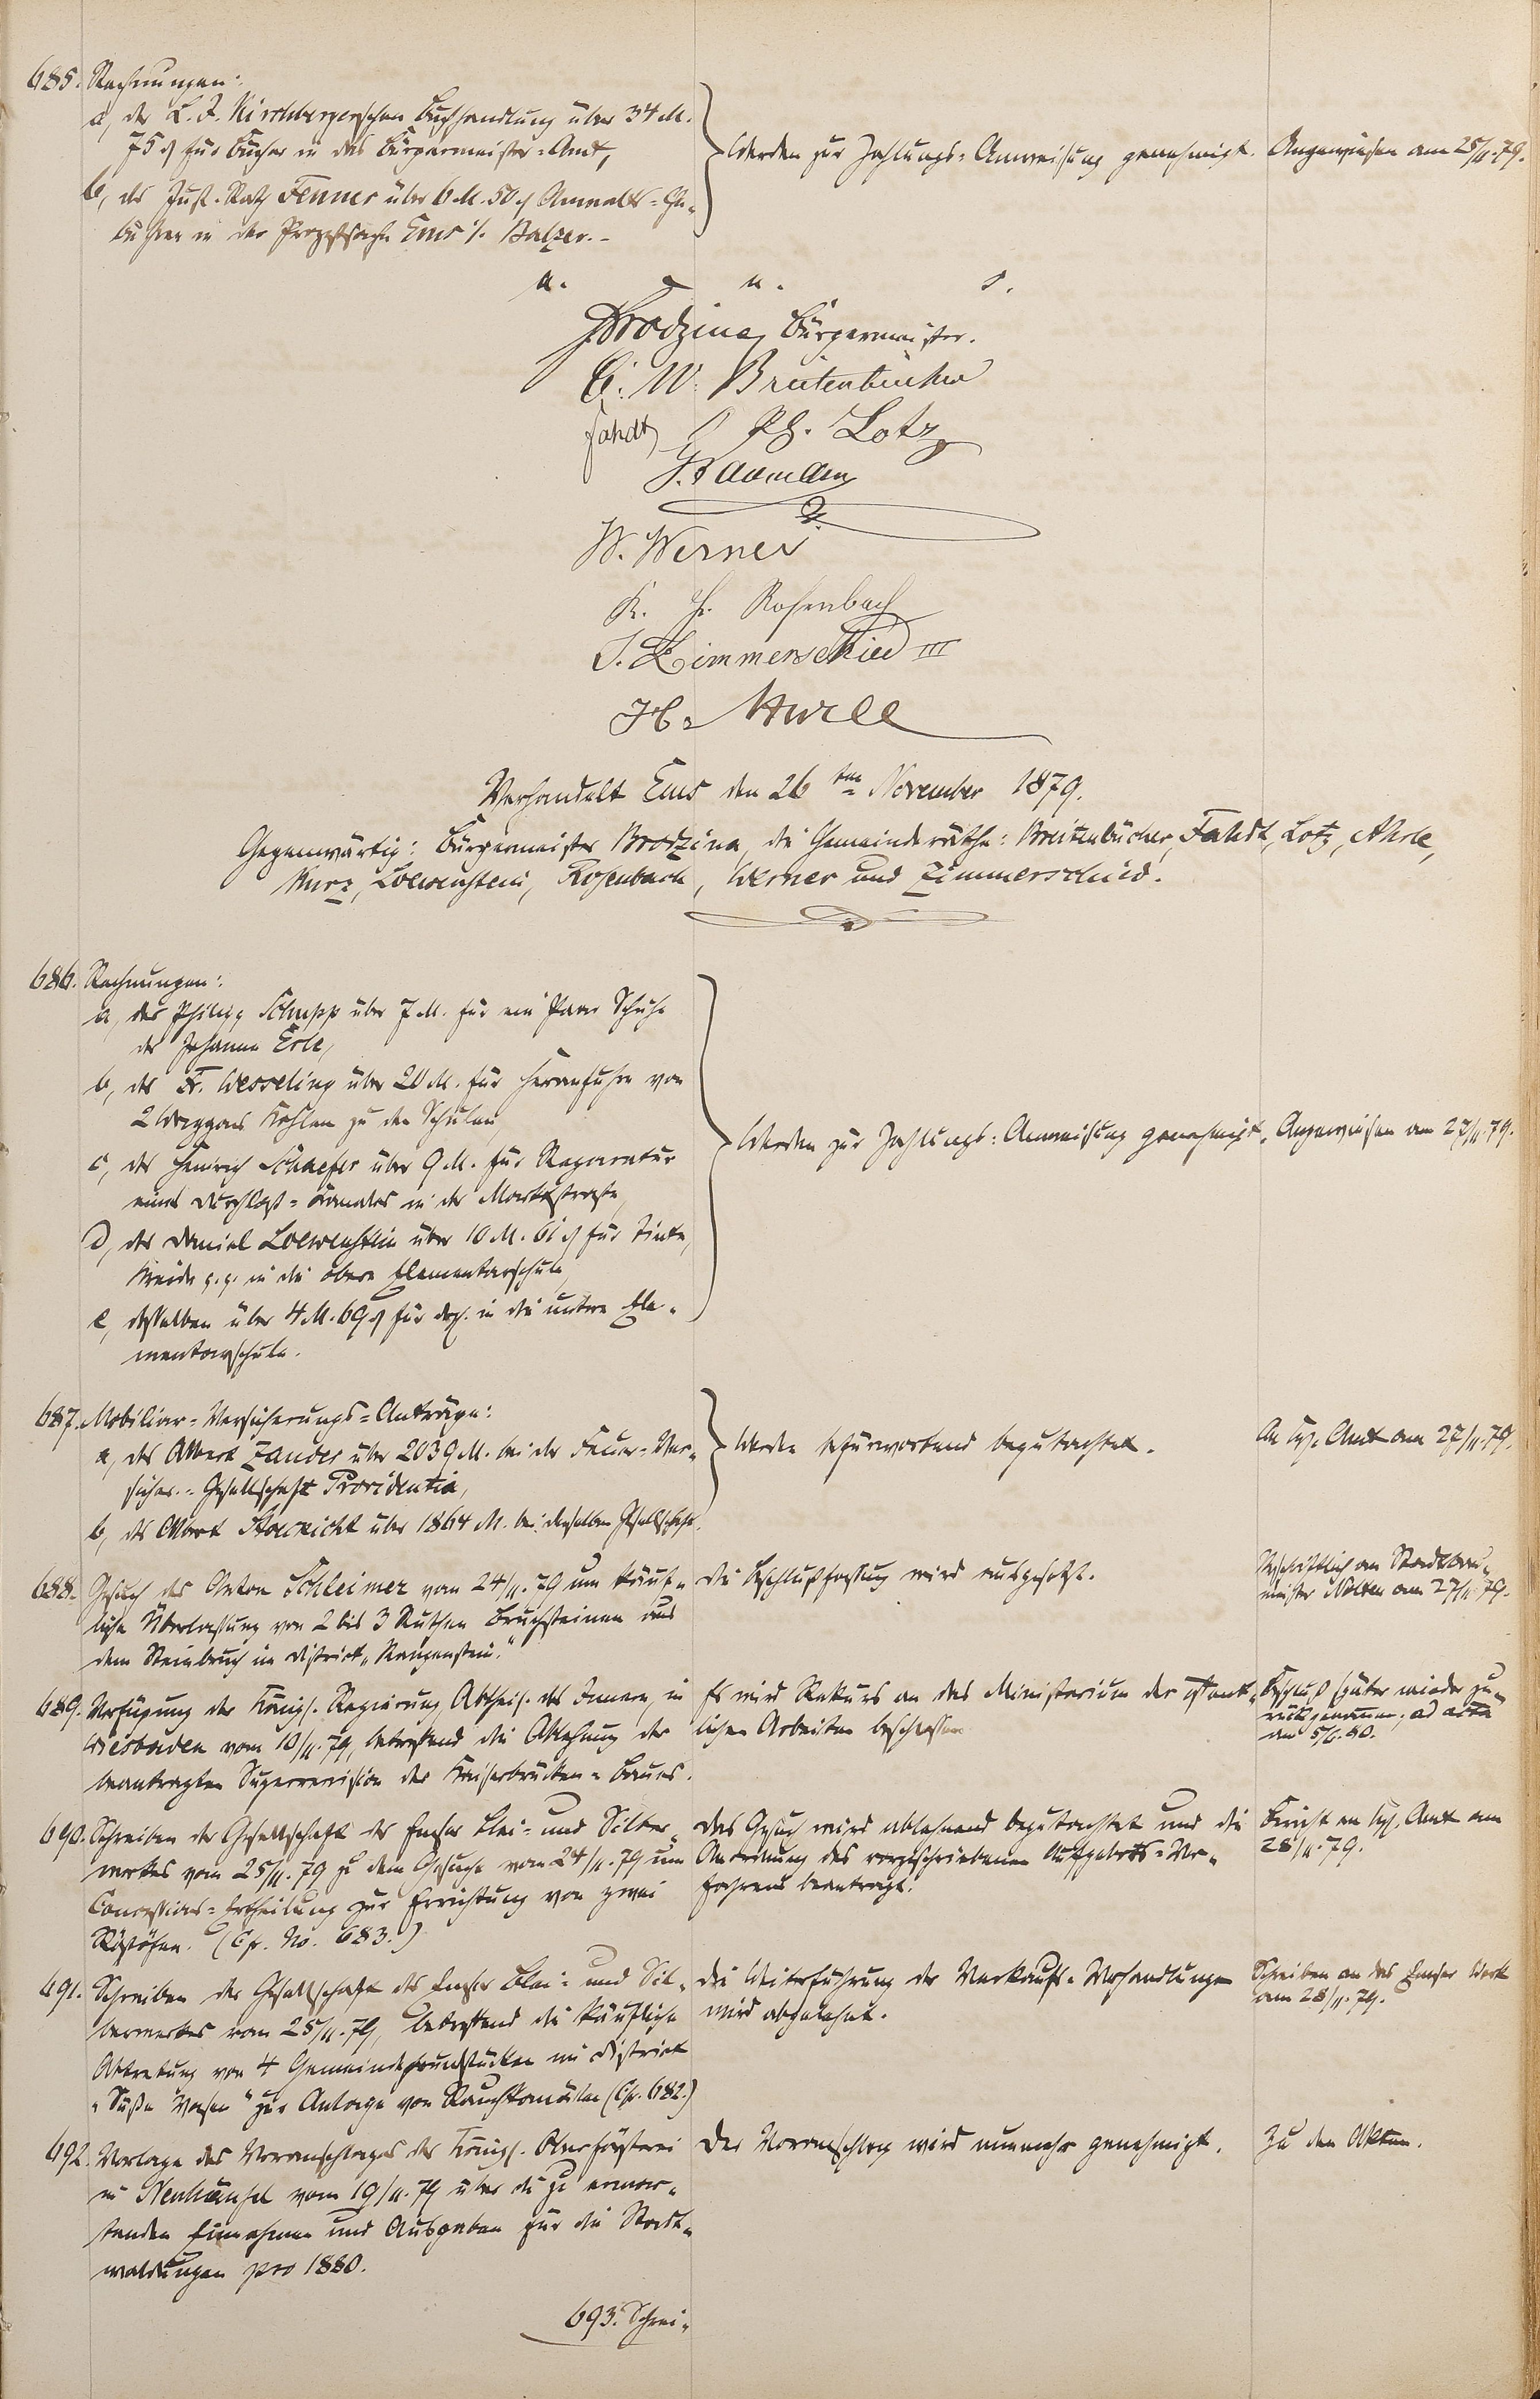 685. Rechnungen:
a, der L. J. Kirchbergerschen Buchhandlung über 34 M.
75 ₰ für Bücher in das Bürgermeister=Amt,
b, des Just. Rath Fenner über 6 M. 50 ₰ Anwalts=Ge„
bühren in der Prozeßsache Ems ./. Balzer. –
Werden zur Zahlungs=Anweisung genehmigt.
Angewiesen am 25/11.79.
a. u. s.
Brodzina, Bürgermeister.
C. W. Breitenbücher
Fahdt
Ph. Lotz
W. Werner
K. H. Rosenbach
J. Zimmerschied III
H.
Verhandelt Ems den 26ten November 1879.
Gegenwärtig: Bürgermeister Brodzina, die Gemeinderäthe: Breitenbücher, Fahdt, Lotz,
Kurz, Loewenstein, Rosenbach, Werner und Zimmerschied.
686. Rechnungen:
a, des Philipp Schupp über 7 M. für ein Paar Schuhe
der Johanna Erle,
b, des Fr. Wesseling über 20 M. für Heranfuhr von
2 Waggons Kohlen zu den Schulen,
c, des Heinrich Schaefer über 9 M. für Reparatur
eines Durchlaß=Kanales in der Marktstraße,
d, des Daniel Loewenstein über 10 M. 61 ₰ für Tinte,
Kreide p. p. in die obere Elementarschule,
e, desselben über 4 M. 69 ₰ für dergl. in die untere Ele„
mentarschule.
Werden zur Zahlungs=Anweisung genehmigt.
Angewiesen am 27/11.79.
687. Mobiliar=Versicherungs=Anträge:
a, des Albert Zander über 2039 M. bei der Feuer=Ver„
sicher.=Gesellschaft Providentia,
b, des über 1864 M. bei derselben Gesellschaft.
Werden befürwortend begutachtet.
An Kgl. Amt am 27/11.79.
688. Gesuch des Anton Schleimer vom 24/11.79 um käuf„
liche Überlassung von 2 bis 3 Ruthen Bruchsteinen aus
dem Steinbruch im District „
Die Beschlußfassung wird ausgesetzt.
Abschriftlich an Stadtbau„
meister Nolten am 27/11.79.
689. Verfügung der Königl. Regierung, Abtheil. des Innern, in
Wiesbaden vom 10/11.79, betreffend die Ablehnung der
beantragten Superrevision des Kaiserbrücken=Baues.
Es wird Rekurs an das Ministerium der öffent„
lichen Arbeiten beschlossen.
Beschluß später wieder zu„
rückgenommen; ad acta
am 5/6.80.
690. Schreiben der Gesellschaft des Emser Blei= und Silber„
werkes vom 25/11.79 zu dem Gesuche vom 24/11.79 um
Concessions=Ertheilung zur Errichtung von zwei
Röstöfen. (Cfr. No. 683.)
Das Gesuch wird ablehnend begutachtet und die
Anordnung des vorgeschriebenen Aufgebots=Ver„
fahrens beantragt.
Bericht an Kgl. Amt am
28/11.79.
691. Schreiben der Gesellschaft des Emser Blei= und Sil„
berwerkes vom 25/11.79, betreffend die käufliche
Abtretung von 4 Gemeindegrundstücken im District
„Süße Wasen“ zur Anlage von Rauchkanälen (Cfr. 682.)
Die Weiterführung der Verkaufs=Verhandlungen
wird abgelehnt.
Schreiben an das Emser Werk
am 28/11.79.
692. Vorlage des Voranschlages der Königl. Oberförsterei
in Neuhäusel vom 19/11.79 über die zu erwar„
tenden Einnahmen und Ausgaben für die Stadt„
waldungen pro 1880.
Der Voranschlag wird nunmehr genehmigt.
Zu den Akten.
693. Schrei„